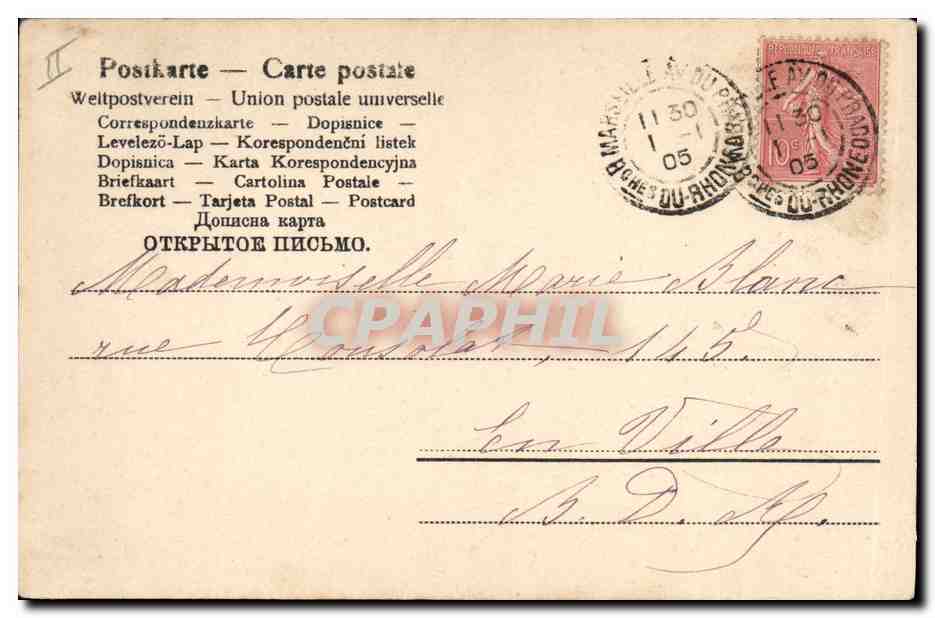 II
Postkarte — Carte postale
Weltpostverein — Union postale universelle
Correspondenzkarte — Dopisnice —
Levelező-Lap — Korespondenční listek
Dopisnica — Karta Korespondencyjna
Briefkaart — Cartolina Postale —
Brefkort — Tarjeta Postal — Postcard
Дописна карта
ОТКРЫТОЕ ПИСЬМО.
MARSEILLE AV. DU PRADO
11 30
1 -1
05
BCHES DU-RHONE
E AV. DU PRADO
11 30
1
05
BCHES DU-RHONE
10 c
Mademoiselle Marie Blanc
rue Consolat, 145.
En Ville
B. D. R.
CPAPHIL